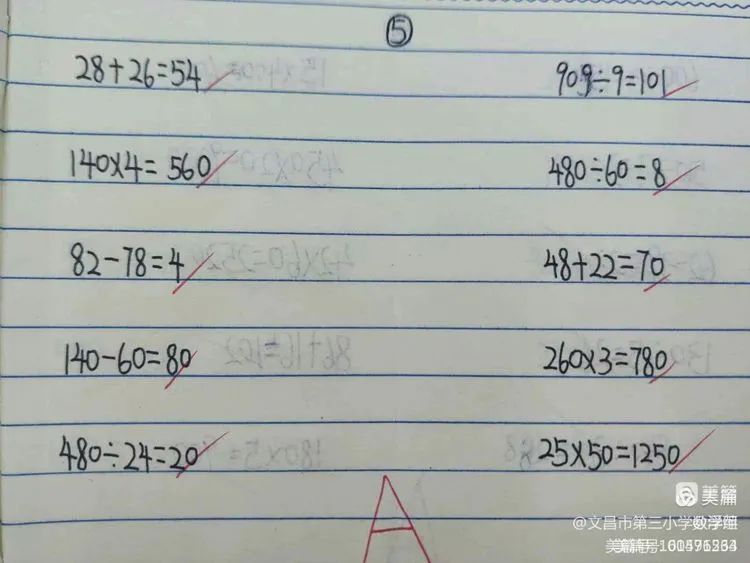 ⑤
28+26=54 909÷9=101
140×4=560 480÷60=8
82-78=4 48+22=70
140-60=80 260×3=780
480÷24=20 25×50=1250
A
美篇
@文昌市第三小学数学组
美篇号: